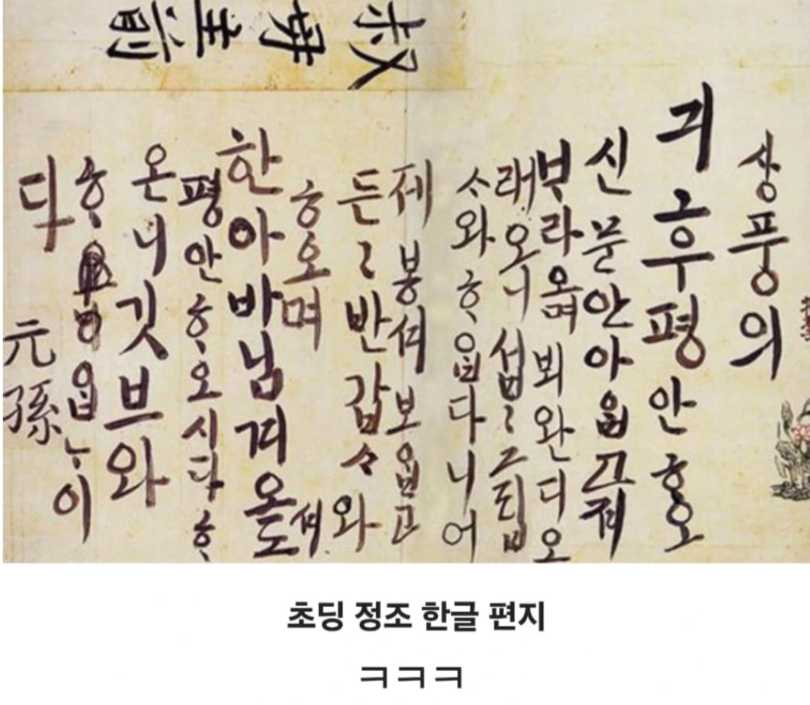 叔母主前
상풍의
긔후평안ᄒᆞ오
신 문안 아ᄋᆞᆸ고져
ᄇᆞ라오며 뵈완디오
래오니 섭〻 그립
ᄉᆞ와 ᄒᆞᄋᆞᆸ다니 어
제 봉셔 보ᄋᆞᆸ고
든〻 반갑ᄉᆞ와
ᄒᆞ오며
한아바님겨오셔도
평안ᄒᆞ오시다ᄒᆞ
온니 깃브와
ᄒᆞᄋᆞᆸᄂᆞ이
다
元孫
초딩 정조 한글 편지
ㅋㅋㅋ